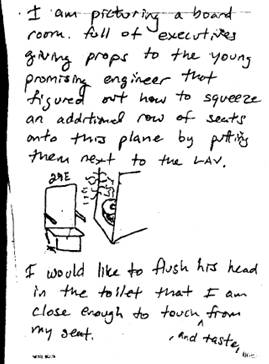 I am picturing a board
room. full of executives
giving props to the young
promising engineer that
figured out how to squeeze
an additional row of seats
onto this plane by putting
them next to the LAV.
29E
I would like to flush his head
in the toilet that I am
close enough to touch from
my seat.
, and taste,